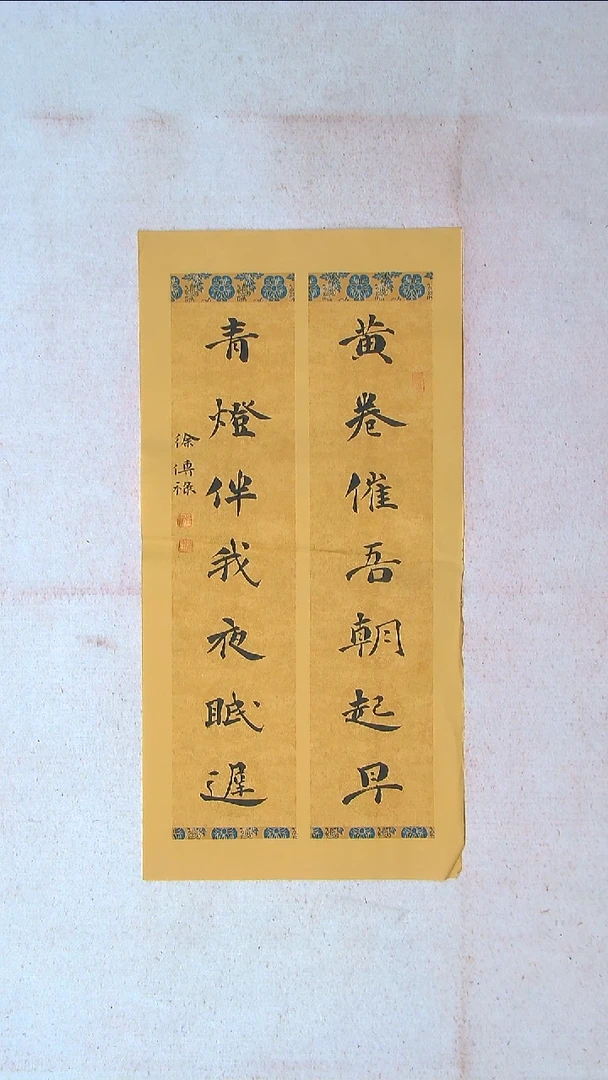 黄卷催吾朝起早
青燈伴我夜眠遲
徐傳祿